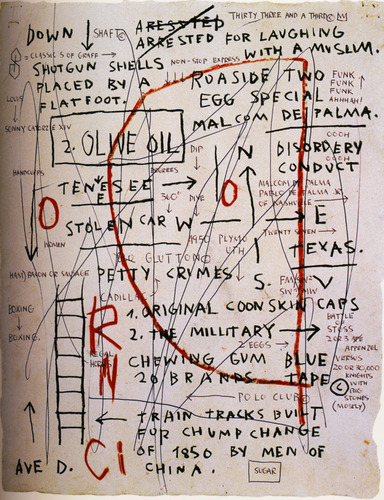 THIRTY THREE AND A THIRD©
DOWN
SHAFT©
ARRESTED FOR LAUGHING
WITH A MUSLIM.
=CLASSICS OF GRAFF→
NON-STOP EXPRESS
SHOTGUN SHELLS
PLACED BY A
FLATFOOT.
ROADSIDE TWO
EGG SPECIAL
MALCOM DE PALMA.
FUNK
FUNK
FUNK
AHHHAH!
LOUIS
SONNY CATORZE XIV
2. OLIVE OIL
DIP
N
OOCH
DISORDERY
OOCH
CONDUCT
HANDCUFFS
DEGREES
TENESEE →
O
MALCOM DE PALMA
PABLO DE PALMA
OF NASHVILLE →
360°
DIVE
O
STOLEN CAR W
E
WOMEN
1950 PLYMOUTH
TWENTY SEVEN →
I
TEXAS.
GLUTTON
HAM, BACON OR SAUSAGE
PETTY CRIMES
S.
V
CADILLAC
1. ORIGINAL COONSKIN CAPS
BOXING
2. THE MILLITARY →
BATTLE
OF
STOSS
2 EGGS →
BOXING.
REGAL
CHEWING GUM BLUE
20 BRANDS TAPE
©
APPENZEL
20 OR 30,000
KNIGHTS
WITH BIG
STONES
(MOSTLY)
R
N
Ci
POLO CLUB©
TRAIN TRACKS BUILT
FOR CHUMP CHANGE
OF 1850 BY MEN OF
CHINA.
AVE D.
SUGAR